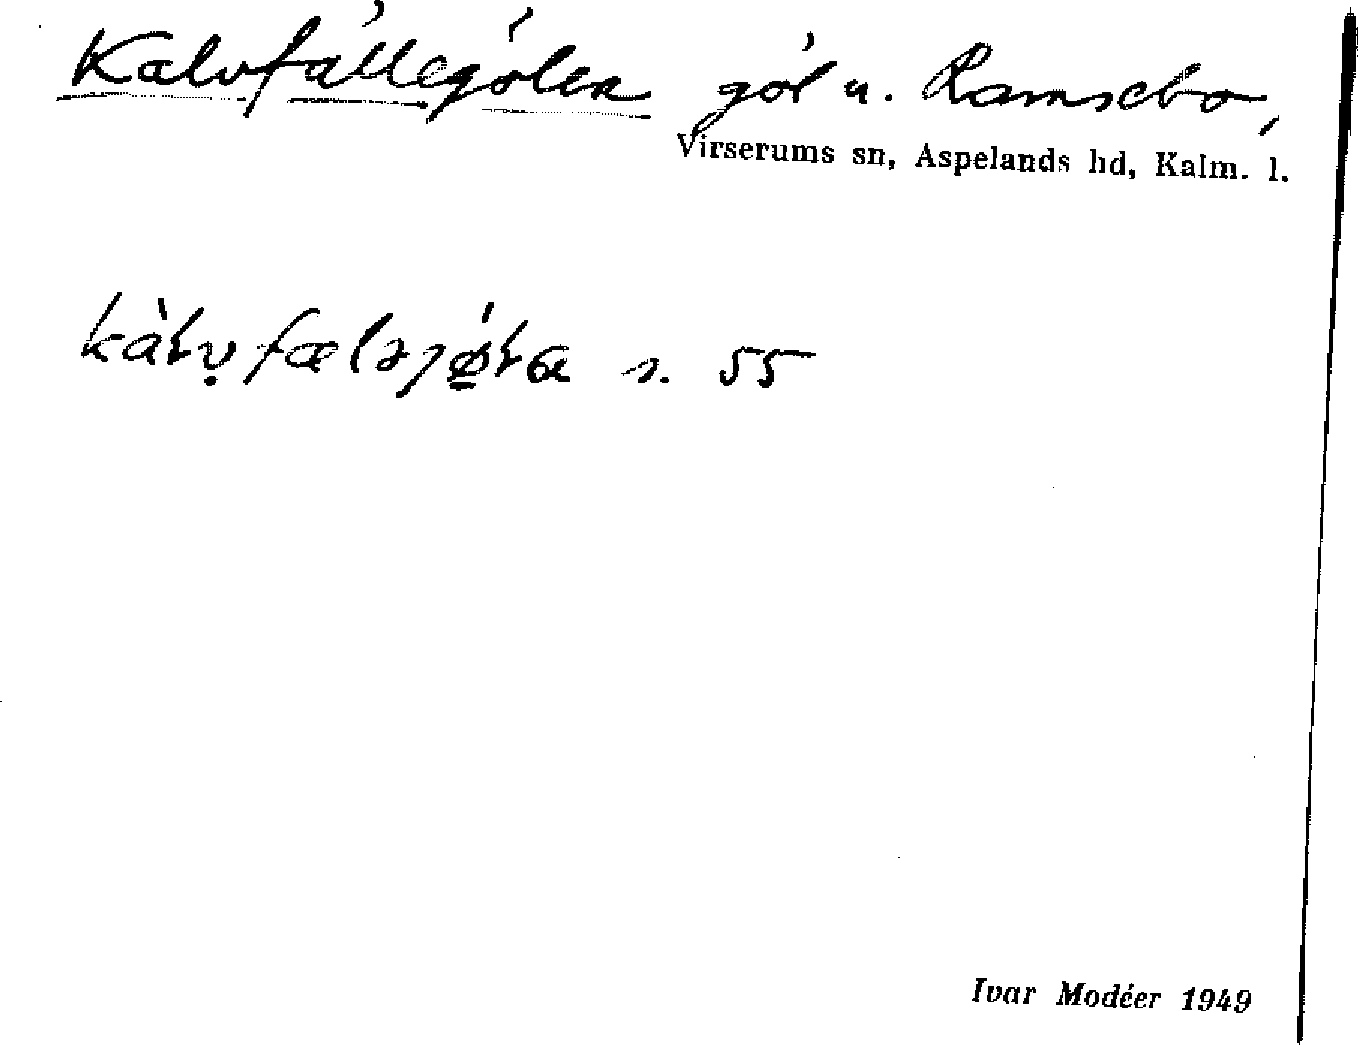 Kalvfällegölen göl u. Ramsebo,
Virserums sn, Aspelands hd, Kalm. l.
s. 55
Ivar Modéer 1949